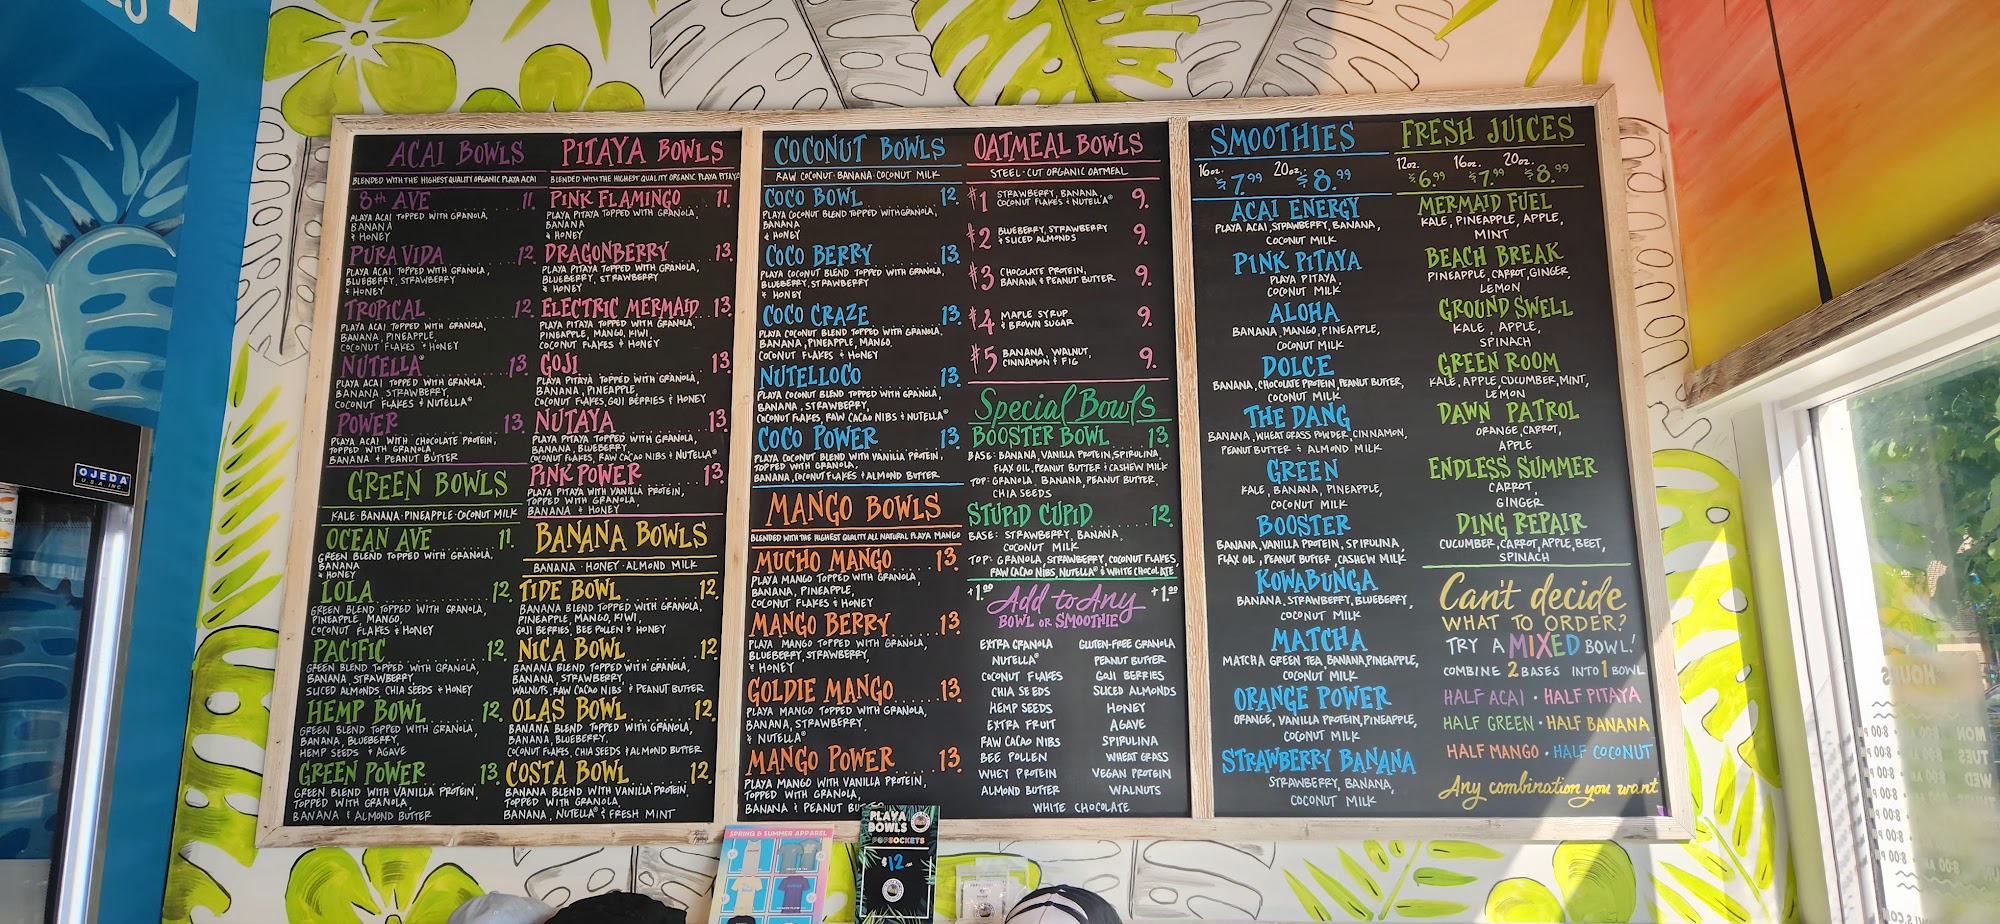 ACAI BOWLS
BLENDED WITH THE HIGHEST QUALITY ORGANIC PLAYA ACAI
8th AVE 11.
PLAYA ACAI TOPPED WITH GRANOLA,
BANANA
& HONEY
PURA VIDA 12.
PLAYA ACAI TOPPED WITH GRANOLA,
BLUEBERRY, STRAWBERRY
& HONEY
TROPICAL 12.
PLAYA ACAI TOPPED WITH GRANOLA,
BANANA, PINEAPPLE,
COCONUT FLAKES & HONEY
NUTELLA® 13.
PLAYA ACAI TOPPED WITH GRANOLA,
BANANA, STRAWBERRY,
COCONUT FLAKES & NUTELLA®
POWER 13.
PLAYA ACAI WITH CHOCOLATE PROTEIN,
TOPPED WITH GRANOLA,
BANANA & PEANUT BUTTER
GREEN BOWLS
KALE·BANANA·PINEAPPLE·COCONUT MILK
OCEAN AVE 11.
GREEN BLEND TOPPED WITH GRANOLA,
BANANA
& HONEY
LOLA 12.
GREEN BLEND TOPPED WITH GRANOLA,
PINEAPPLE, MANGO,
COCONUT FLAKES & HONEY
PACIFIC 12.
GREEN BLEND TOPPED WITH GRANOLA,
BANANA, STRAWBERRY
SLICED ALMONDS, CHIA SEEDS & HONEY
HEMP BOWL 12.
GREEN BLEND TOPPED WITH GRANOLA,
BANANA, BLUEBERRY,
HEMP SEEDS & AGAVE
GREEN POWER 13.
GREEN BLEND WITH VANILLA PROTEIN,
TOPPED WITH GRANOLA,
BANANA & ALMOND BUTTER
PITAYA BOWLS
BLENDED WITH THE HIGHEST QUALITY ORGANIC PLAYA PITAYA
PINK FLAMINGO 11.
PLAYA PITAYA TOPPED WITH GRANOLA,
BANANA
& HONEY
DRAGONBERRY 13.
PLAYA PITAYA TOPPED WITH GRANOLA,
BLUEBERRY, STRAWBERRY
& HONEY
ELECTRIC MERMAID 13.
PLAYA PITAYA TOPPED WITH GRANOLA,
PINEAPPLE, MANGO, KIWI
COCONUT FLAKES & HONEY
GOJI 13.
PLAYA PITAYA TOPPED WITH GRANOLA,
BANANA, PINEAPPLE,
COCONUT FLAKES, GOJI BERRIES & HONEY
NUTAYA 13.
PLAYA PITAYA TOPPED WITH GRANOLA,
BANANA, BLUEBERRY,
COCONUT FLAKES, RAW CACAO NIBS & NUTELLA®
PINK POWER 13.
PLAYA PITAYA WITH VANILLA PROTEIN,
TOPPED WITH GRANOLA
BANANA & HONEY
BANANA BOWLS
BANANA·HONEY·ALMOND MILK
TIDE BOWL 12.
BANANA BLEND TOPPED WITH GRANOLA,
PINEAPPLE, MANGO, KIWI,
GOJI BERRIES, BEE POLLEN & HONEY
NICA BOWL 12.
BANANA BLEND TOPPED WITH GRANOLA,
BANANA, STRAWBERRY,
WALNUTS, RAW CACAO NIBS & PEANUT BUTTER
OLAS BOWL 12.
BANANA BLEND TOPPED WITH GRANOLA,
BANANA, BLUEBERRY,
COCONUT FLAKES, CHIA SEEDS & ALMOND BUTTER
COSTA BOWL 12.
BANANA BLEND WITH VANILLA PROTEIN,
TOPPED WITH GRANOLA,
BANANA, NUTELLA® & FRESH MINT
COCONUT BOWLS
RAW COCONUT·BANANA·COCONUT MILK
COCO BOWL 12.
PLAYA COCONUT BLEND TOPPED WITH GRANOLA,
BANANA
& HONEY
COCO BERRY 13.
PLAYA COCONUT BLEND TOPPED WITH GRANOLA,
BLUEBERRY, STRAWBERRY
& HONEY
COCO CRAZE 13.
PLAYA COCONUT BLEND TOPPED WITH GRANOLA,
BANANA, PINEAPPLE, MANGO,
COCONUT FLAKES & HONEY
NUTELLOCO 13.
PLAYA COCONUT BLEND TOPPED WITH GRANOLA,
BANANA, STRAWBERRY,
COCONUT FLAKES, RAW CACAO NIBS & NUTELLA®
COCO POWER 13.
PLAYA COCONUT BLEND WITH VANILLA PROTEIN,
TOPPED WITH GRANOLA,
BANANA, COCONUT FLAKES & ALMOND BUTTER
MANGO BOWLS
BLENDED WITH THE HIGHEST QUALITY ALL NATURAL PLAYA MANGO
MUCHO MANGO 13.
PLAYA MANGO TOPPED WITH GRANOLA,
BANANA, PINEAPPLE,
COCONUT FLAKES & HONEY
MANGO BERRY 13.
PLAYA MANGO TOPPED WITH GRANOLA,
BLUEBERRY, STRAWBERRY
& HONEY
GOLDIE MANGO 13.
PLAYA MANGO TOPPED WITH GRANOLA,
BANANA, STRAWBERRY
& NUTELLA®
MANGO POWER 13.
PLAYA MANGO WITH VANILLA PROTEIN,
TOPPED WITH GRANOLA,
BANANA & PEANUT BU
OATMEAL BOWLS
STEEL-CUT ORGANIC OATMEAL
#1 STRAWBERRY, BANANA, 9.
COCONUT FLAKES & NUTELLA®
#2 BLUEBERRY, STRAWBERRY 9.
& SLICED ALMONDS
#3 CHOCOLATE PROTEIN, 9.
BANANA & PEANUT BUTTER
#4 MAPLE SYRUP 9.
& BROWN SUGAR
#5 BANANA, WALNUT, 9.
CINNAMON & FIG
Special Bowls
BOOSTER BOWL 13.
BASE: BANANA, VANILLA PROTEIN, SPIRULINA,
FLAX OIL, PEANUT BUTTER & CASHEW MILK
TOP: GRANOLA, BANANA, PEANUT BUTTER,
CHIA SEEDS
STUPID CUPID 12.
BASE: STRAWBERRY, BANANA,
COCONUT MILK
TOP: GRANOLA, STRAWBERRY, COCONUT FLAKES,
RAW CACAO NIBS, NUTELLA® & WHITE CHOCOLATE
+1.00 Add to Any +1.00
BOWL OR SMOOTHIE
EXTRA GRANOLA GLUTEN-FREE GRANOLA
NUTELLA® PEANUT BUTTER
COCONUT FLAKES GOJI BERRIES
CHIA SEEDS SLICED ALMONDS
HEMP SEEDS HONEY
EXTRA FRUIT AGAVE
RAW CACAO NIBS SPIRULINA
BEE POLLEN WHEAT GRASS
WHEY PROTEIN VEGAN PROTEIN
ALMOND BUTTER WALNUTS
WHITE CHOCOLATE
SMOOTHIES
16oz. $7.99 20oz. $8.99
ACAI ENERGY
PLAYA ACAI, STRAWBERRY, BANANA,
COCONUT MILK
PINK PITAYA
PLAYA PITAYA,
COCONUT MILK
ALOHA
BANANA, MANGO, PINEAPPLE,
COCONUT MILK
DOLCE
BANANA, CHOCOLATE PROTEIN, PEANUT BUTTER,
COCONUT MILK
THE DANG
BANANA, WHEAT GRASS POWDER, CINNAMON,
PEANUT BUTTER & ALMOND MILK
GREEN
KALE, BANANA, PINEAPPLE,
COCONUT MILK
BOOSTER
BANANA, VANILLA PROTEIN, SPIRULINA,
FLAX OIL, PEANUT BUTTER, CASHEW MILK
KOWABUNGA
BANANA, STRAWBERRY, BLUEBERRY,
COCONUT MILK
MATCHA
MATCHA GREEN TEA, BANANA, PINEAPPLE,
COCONUT MILK
ORANGE POWER
ORANGE, VANILLA PROTEIN, PINEAPPLE,
COCONUT MILK
STRAWBERRY BANANA
STRAWBERRY, BANANA,
COCONUT MILK
FRESH JUICES
12oz. $6.99 16oz. $7.99 20oz. $8.99
MERMAID FUEL
KALE, PINEAPPLE, APPLE,
MINT
BEACH BREAK
PINEAPPLE, CARROT, GINGER,
LEMON
GROUND SWELL
KALE, APPLE,
SPINACH
GREEN ROOM
KALE, APPLE, CUCUMBER, MINT,
LEMON
DAWN PATROL
ORANGE, CARROT,
APPLE
ENDLESS SUMMER
CARROT,
GINGER
DING REPAIR
CUCUMBER, CARROT, APPLE, BEET,
SPINACH
Can't decide
WHAT TO ORDER?
TRY A MIXED BOWL!
COMBINE 2 BASES INTO 1 BOWL
HALF ACAI · HALF PITAYA
HALF GREEN · HALF BANANA
HALF MANGO · HALF COCONUT
Any combination you want
OJEDA
U.S.A. INC
SPRING & SUMMER APPAREL
PLAYA
BOWLS
POPSOCKETS
$12
HOURS
MON
TUES
WED